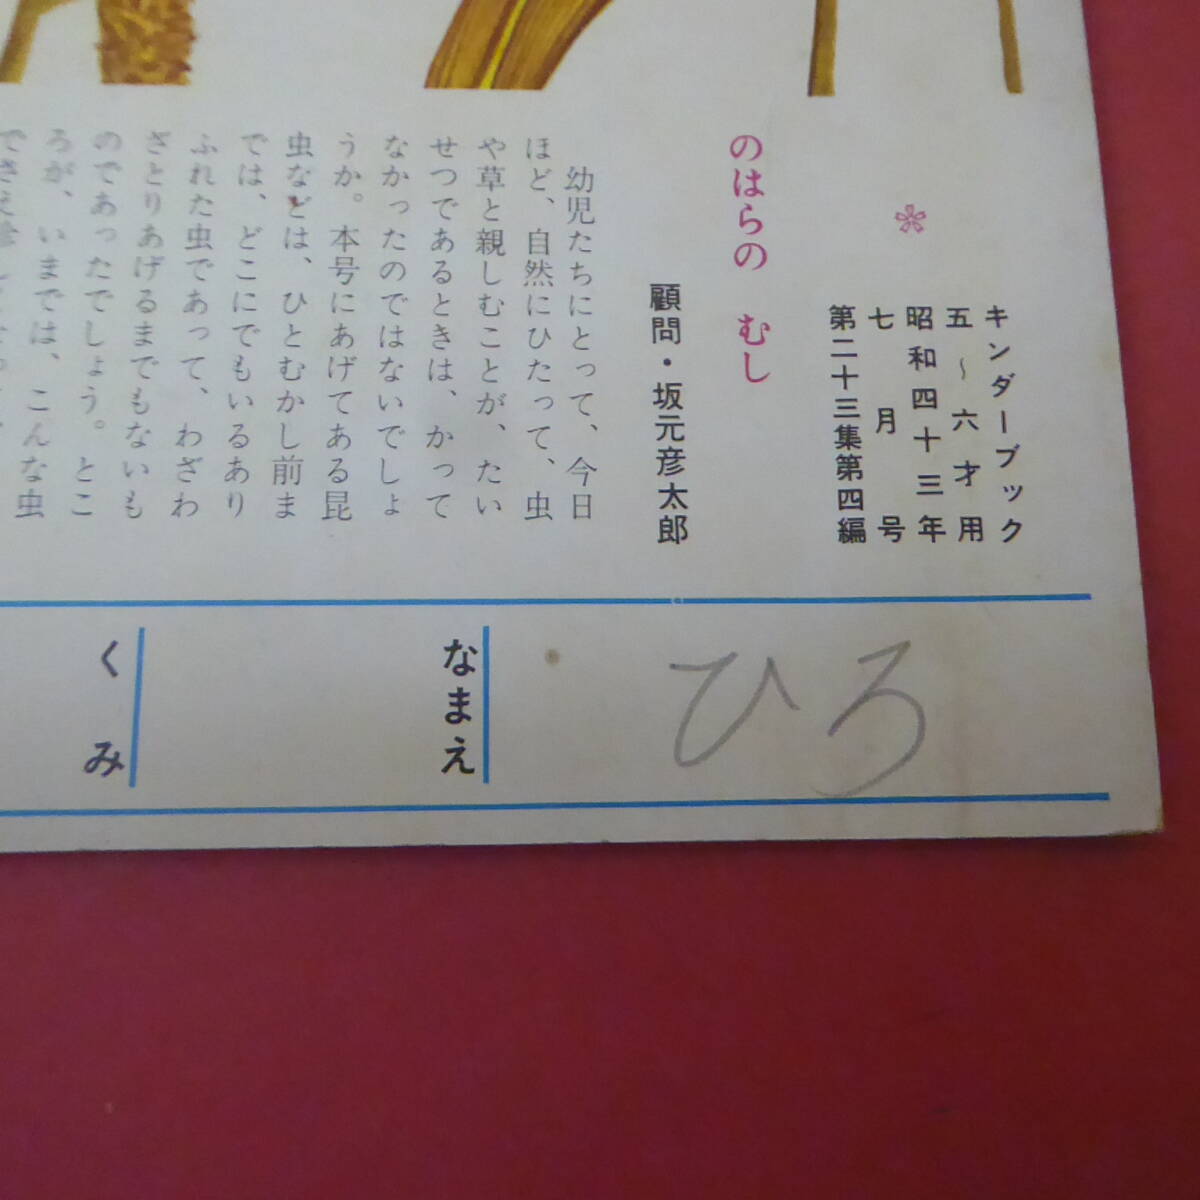 キンダーブック
五～六才用
昭和四十三年
七月号
第二十三集第四編
のはらの むし
顧問・坂元彦太郎
幼児たちにとって、今日
ほど、自然にひたって、虫
や草と親しむことが、たい
せつであるときは、かって
なかったのではないでしょ
うか。本号にあげてある昆
虫などは、ひとむかし前ま
では、どこにでもいるあり
ふれた虫であって、わざわ
ざとりあげるまでもないも
のであったでしょう。とこ
ろが、いまでは、こんな虫
でさえ
ひろ
なまえ
くみ